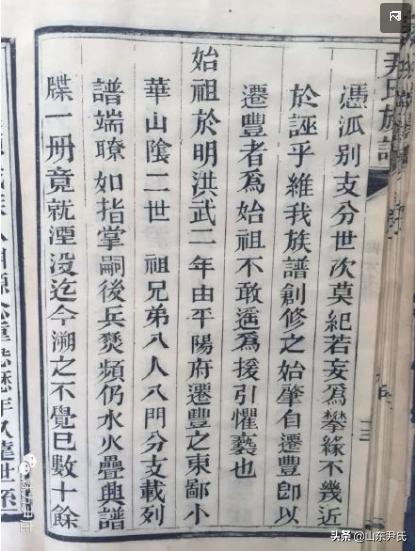 尹氏族譜
憑泒别支分世次莫紀若妄爲攀緣不幾近
於誣乎維我族譜創修之始肇自遷豐卽以
遷豐者爲始祖不敢遥爲援引懼褻也
始祖於明洪武二年由平陽府遷豐之東鄙小
華山陰二世 祖兄弟八人八門分支載列
譜端瞭如指掌嗣後兵燹頻仍水火疊興譜
牒一册竟就湮没迄今溯之不覺已數十餘
头条 @山东尹氏